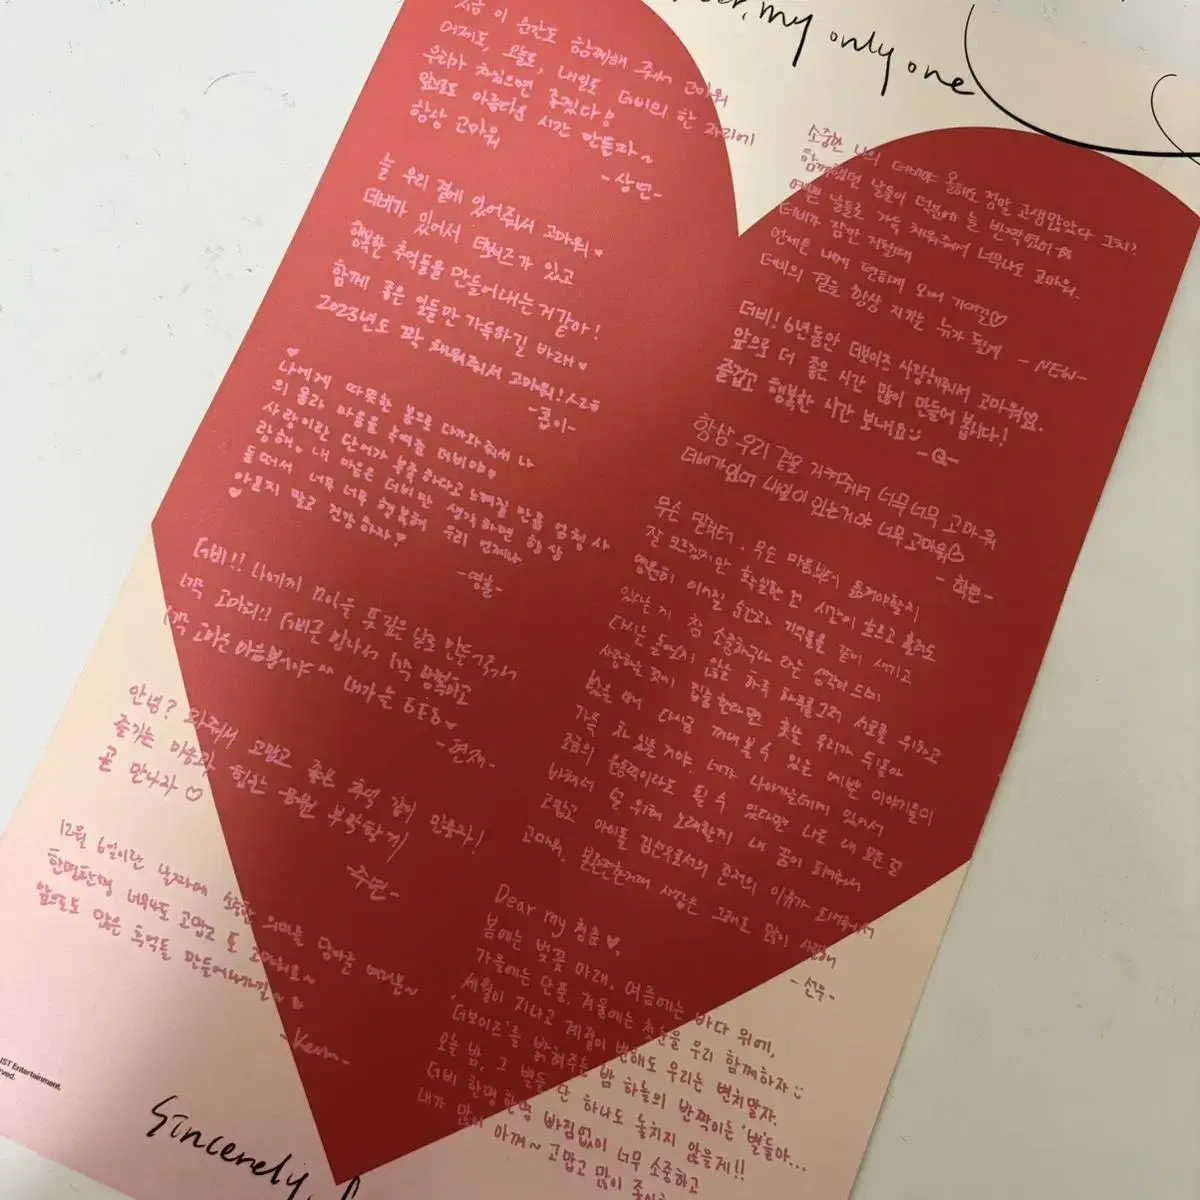 my only one
지금 이 순간도 함께해 줘서 고마워
어제도, 오늘도, 내일도 더비의 한 자리에
우리가 있으면 좋겠다!
앞으로도 아름다운 시간 만들자~
항상 고마워
-상연-
늘 우리 곁에 있어줘서 고마워♥
더비가 있어서 더보이즈가 있고
행복한 추억들을 만들어내는 거같아!
함께 좋은 일들만 가득하길 바래♥
2023년도 꽉 채워줘서 고마워!
나에게 따뜻한 봄으로 다가와줘서 나
의 마음을 녹여준 더비야♥
사랑이란 단어가 부족하다고 느껴질 만큼 엄청 사
랑해. 내 마음은 더비만 생각하면 항상
너무 너무 행복해 우리 언제나
아프지 말고 건강하자!
-영훈-
더비!! 나에게
-현재-
안녕? 와줘서 고맙고 좋은 추억
즐기는 부탁할게
곧 만나자 ♡
-주연-
12월 6일이란 날짜에 소중한 의미를 담아준 여러분~
한명한명 너무나도 고맙고 또 고마워요~
앞으로도 많은 추억들 만들어나가길~ ♥
-Kevin-
소중한 나의 더비야 올해도 정말 고생많았다 그치?
함께했던 날들이 덕분에 늘 반짝였어☆
예쁜 날들로 가득 채워줘서 너무나도 고마워.
더비가 잠깐 지칠때
언제든 나에 편하게 기대길♡
더비의 곁을 항상 지키는 뉴가 될게 -NEW-
더비! 6년동안 더보이즈 사랑해줘서 고마워♡.
앞으로 더 좋은 시간 많이 만들어 봅시다!
즐겁고 행복한 시간 보내요
-Q-
항상 우리 곁을 지켜줘서 너무너무 고마워
더비가있어 내일이 있는거야 너무 고마워♡
-학년-
무슨 말부터, 무슨 마음부터 옮겨야할지
잘 모르겠지만 확실한 건 시간이 흐르고 흘러도
영원히 이어질 순간과 기억들을 같이 새기고
있다는 게 참 소중하구나 라는 생각이 드네
다시는 돌아오지 않을 하루 하루를 그저 서로를 위하고
사랑하는 것에 집중한다면 훗날 우리가 뒤돌아
봤을 때 다시금 꺼내볼 수 있는 예쁜 이야기들이
가득 차 있을 거야. 네가 나아가는데에 있어서
조금의 원동력이라도 될 수 있다면 나도 내 모든 걸
바쳐서 널 위해 노래할게 내 꿈이 되어줘서
고맙고 아이돌 김선우로서의 존재의 이유가 되어줘서
고마워. 사랑은 그래도 많이 사랑해
-선우-
Dear my 청춘♥,
봄에는 벚꽃 아래, 여름에는 바다 위에,
가을에는 단풍, 겨울에는 첫눈을 우리 함께하자
세월이 지나고 계절이 변해도 우리는 변치말자.
'더보이즈'를 밝혀주는 밤 하늘의 반짝이는 '별'들아...
오늘 밤, 그 별들 단 하나도 놓치지 않을게!!
더비 한명 한명 빠짐없이 너무 소중하고
내가 많이 아껴~ 고맙고 많이
IST Entertainment.
Sincerely,